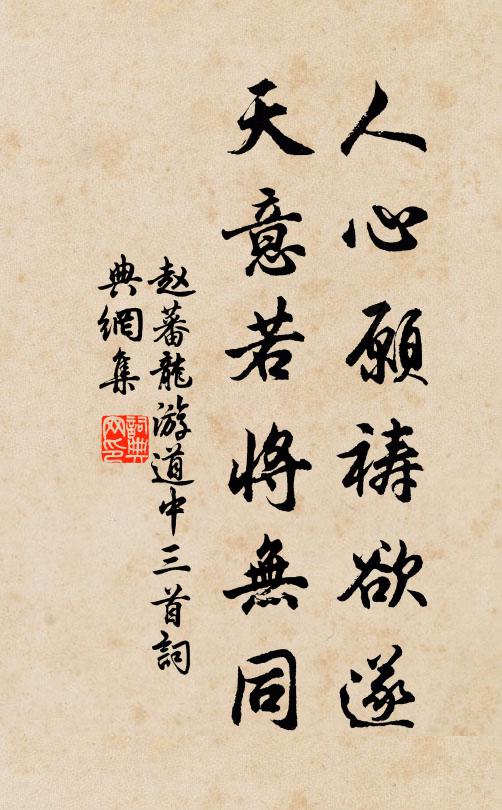 人心願祷欲遂
天意若将無同
赵蕃龍游道中三首詞
典網集
詞典
网印